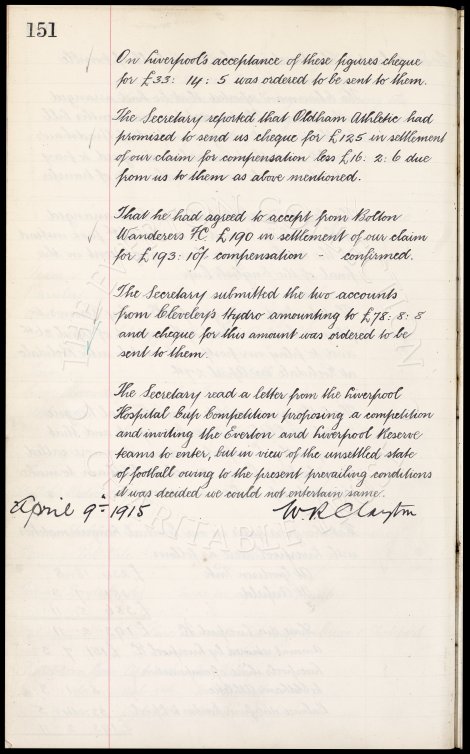 151
On Liverpool's acceptance of these figures cheque
for £33: 14: 5 was ordered to be sent to them.
The Secretary reported that Oldham Athletic had
promised to send us cheque for £125 in settlement
of our claim for compensation less £16: 2: 6 due
from us to them as above mentioned.
That he had agreed to accept from Bolton
Wanderers FC £190 in settlement of our claim
for £193: compensation - confirmed.
The Secretary submitted the two accounts
from Cleveley's Hydro amounting to £78: 8: 8
and cheque for this amount was ordered to be
sent to them.
The Secretary read a letter from the Liverpool
Hospital Cup Competition proposing a competition
and inviting the Everton and Liverpool Reserve
teams to enter, but in view of the unsettled state
of football owing to the present prevailing conditions
it was decided we could not entertain same.
April 9th 1915 W. R. Clayton